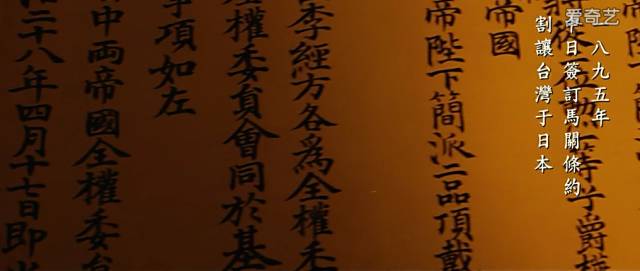 爱奇艺
一八九五年
中日簽訂馬關條約
割讓台灣于日本
一等子爵
帝國
帝陛下簡派二品頂戴
李經方各爲全權
權委員會同於基
事項如左
中両帝國全權委
二十八年四月十七日即